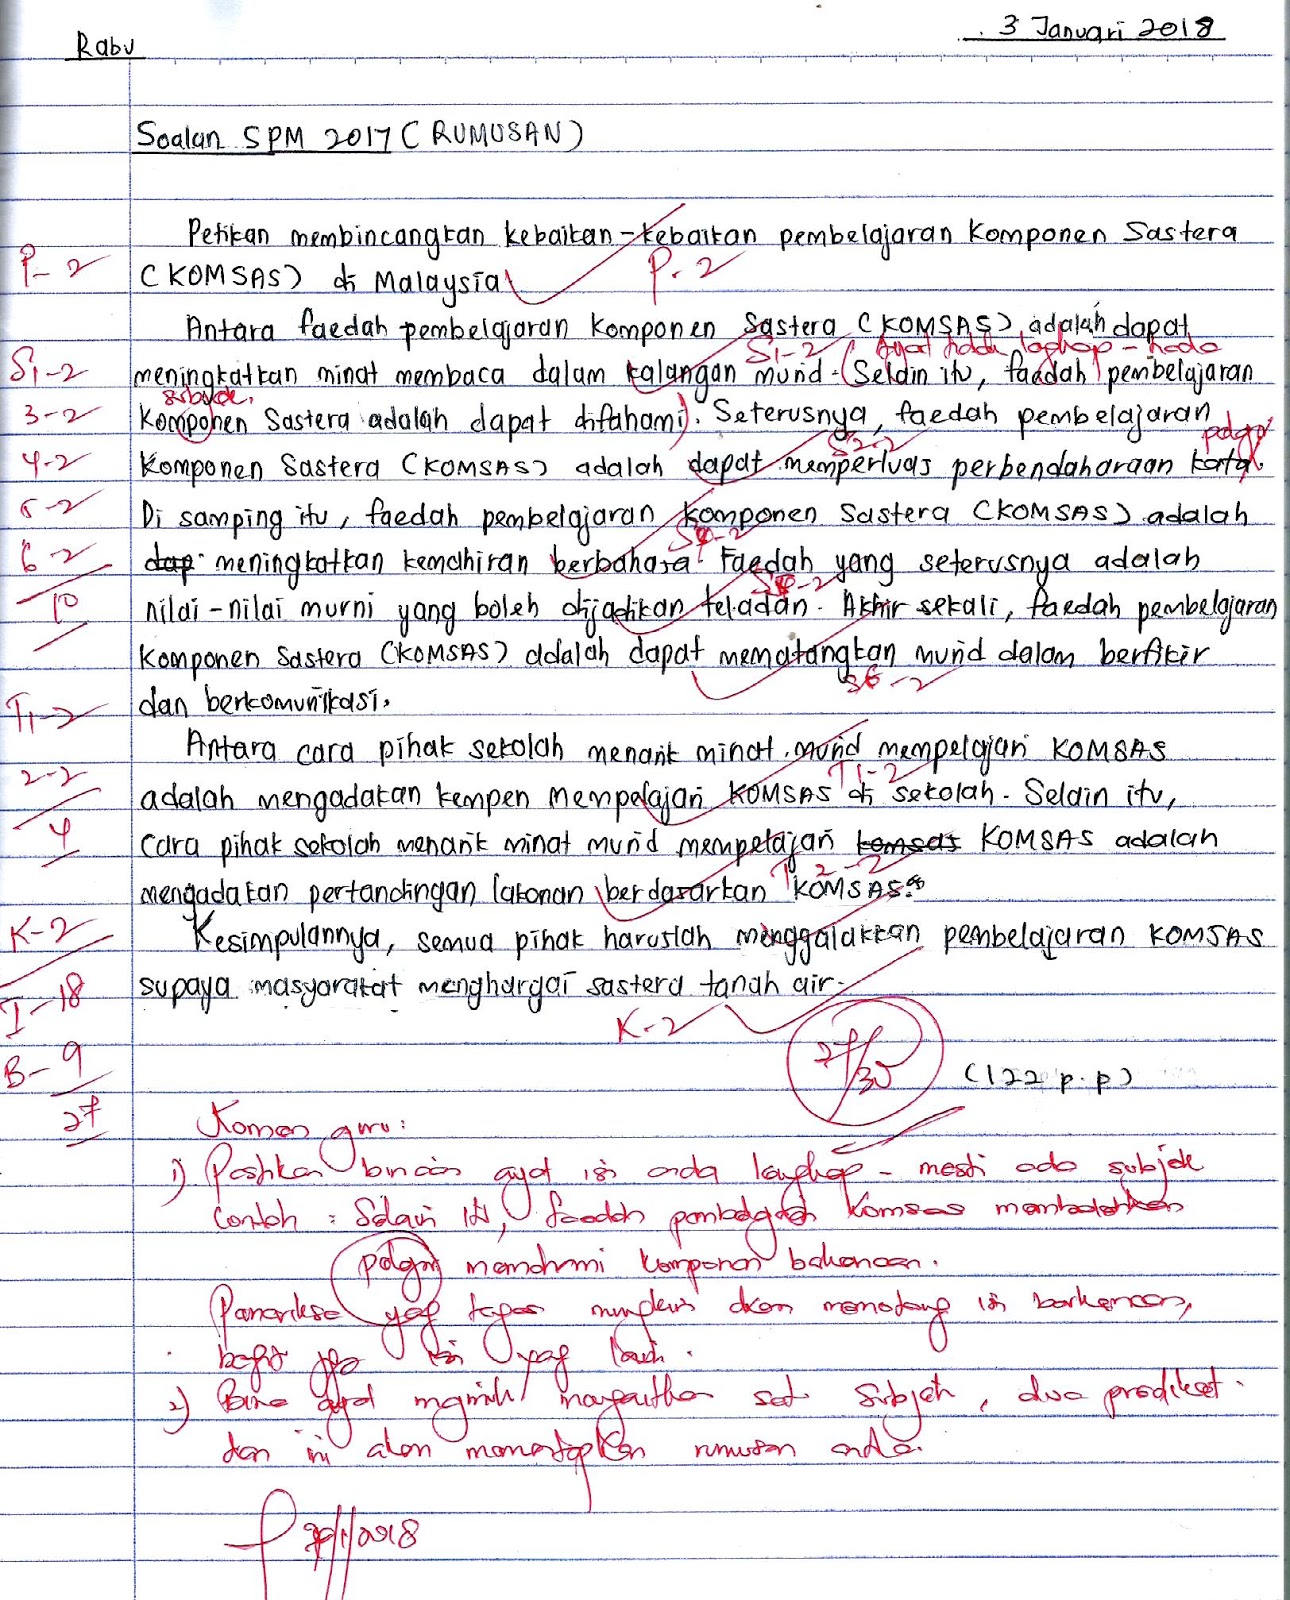 Rabu
3 Januari 2018
Soalan SPM 2017 (RUMUSAN)
Petikan membincangkan kebaikan-kebaikan pembelajaran Komponen Sastera
P-2
(KOMSAS) di Malaysia
P-2
Antara faedah pembelajaran Komponen Sastera (KOMSAS) adalah dapat
S1-2 (Ayat tidak lengkap - tiada
S1-2
meningkatkan minat membaca dalam kalangan murid. Selain itu, faedah pembelajaran
subjek.
3-2
Komponen Sastera adalah dapat difahami). Seterusnya, faedah pembelajaran
S2-2 pelajar
4-2
Komponen Sastera (KOMSAS) adalah dapat memperluas perbendaharaan kata.
5-2
Di samping itu, faedah pembelajaran Komponen Sastera (KOMSAS) adalah
6-2
dap meningkatkan kemahiran berbahasa. Faedah yang seterusnya adalah
10
nilai-nilai murni yang boleh dijadikan teladan. Akhir sekali, faedah pembelajaran
Komponen Sastera (KOMSAS) adalah dapat mematangkan murid dalam berfikir
S6-2
T1-2
dan berkomunikasi.
Antara cara pihak sekolah menarik minat murid mempelajari KOMSAS
T1-2
2-2
adalah mengadakan kempen mempelajari KOMSAS di sekolah. Selain itu,
4
cara pihak sekolah menarik minat murid mempelajari komsas KOMSAS adalah
T2-2
mengadakan pertandingan lakonan berdasarkan KOMSAS.
K-2
Kesimpulannya, semua pihak haruslah menggalakkan pembelajaran KOMSAS
I-18
supaya masyarakat menghargai sastera tanah air.
K-2
27/30
B-9
(122 p.p)
27
Komen guru:
1) Pastikan binaan ayat isi anda lengkap - mesti ada subjek
Contoh : Selain itu, faedah pembelajaran Komsas membolehkan
pelajar memahami komponen berkenaan.
Pemeriksa yang tegas mungkin akan memotong isi berkenaan,
begitu juga isi yang lain.
2) Bina ayat majmuk mengaitkan satu subjek, dua predikat.
dan ini akan memantapkan rumusan anda.
/1/2018